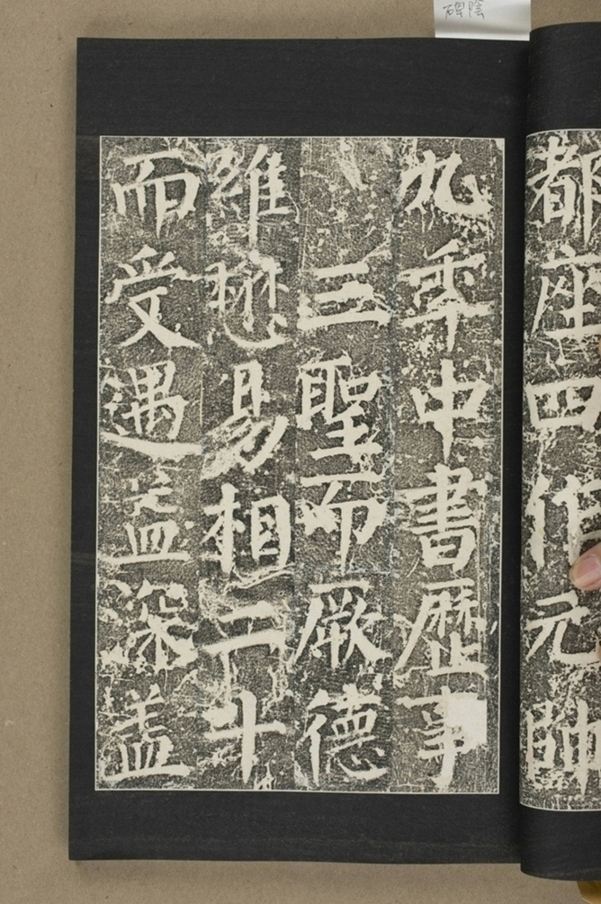 都座四作元帥
九秊中書歷事
三聖而厥德
維懋易相二十
而受遇益深蓋